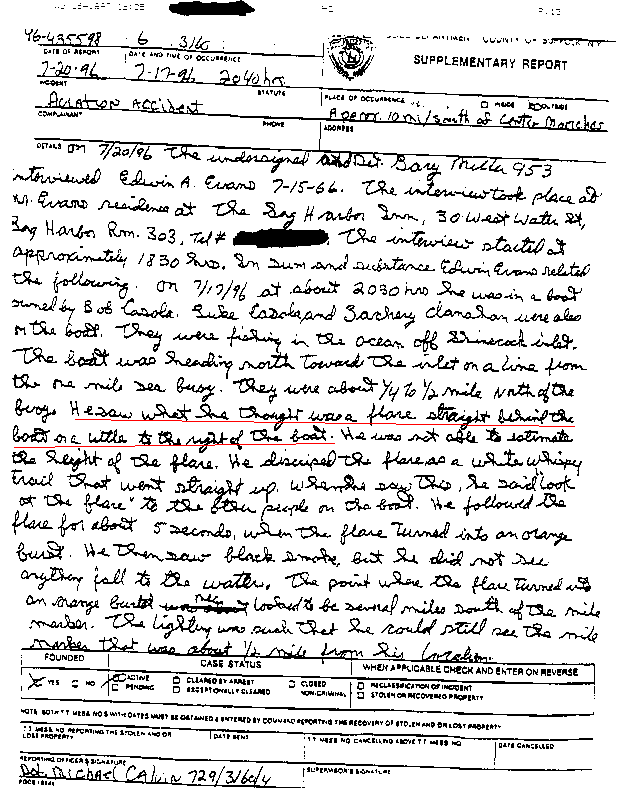 P.13
96-435598 6 3160
DEPARTMENT COUNTY OF SUFFOLK NY
DATE OF REPORT DATE AND TIME OF OCCURRENCE
SUPPLEMENTARY REPORT
7-20-96 7-17-96 2040 hrs
INCIDENT STATUTE
PLACE OF OCCURRENCE INSIDE OUTSIDE
Aviation Accident
Approx. 10 mi/south of Center Moriches
COMPLAINANT PHONE ADDRESS
DETAILS On 7/20/96 The undersigned and Det. Gary Miller 953
interviewed Edwin A. Evans 7-15-66. The interview took place at
Mr. Evans residence at The Sag Harbor Inn, 30 West Water St,
Sag Harbor Rm. 303, Tel# The interview started at
approximately 1830 hrs. In sum and substance Edwin Evans related
the following. On 7/17/96 at about 2030 hrs he was in a boat
owned by Bob Casola. Luke Casola and Zachery Clanahan were also
on the boat. They were fishing in the ocean off Shinecock inlet.
The boat was heading north toward the inlet on a line from
the one mile sea buoy. They were about 1/4 to 1/2 mile North of the
buoy. He saw what he thought was a flare straight behind the
boat or a little to the right of the boat. He was not able to estimate
the height of the flare. He discriped the flare as a white whispy
trail that went straight up. When he say this, he said "look
at the flare" to the other people on the boat. He followed the
flare for about 5 seconds, when the flare turned into an orange
burst. He then saw black smoke, but he did not see
anything fall to the water. The point where the flare turned into
an orange burst looked to be several miles south of the mile
marker. The lighting was such that he could still see the mile
marker that was about 1/2 mile from his location.
FOUNDED CASE STATUS WHEN APPLICABLE CHECK AND ENTER ON REVERSE
YES NO ACTIVE CLEARED BY ARREST CLOSED RECLASSIFICATION OF INCIDENT
PENDING EXCEPTIONALLY CLEARED NON-CRIMINAL STOLEN OR RECOVERED PROPERTY
NOTE: BOTH TT MESS NO S WITH DATES MUST BE OBTAINED & ENTERED BY COMMAND REPORTING THE RECOVERY OF STOLEN AND OR LOST PROPERTY
TT MESS NO REPORTING THE STOLEN AND OR DATE SENT TT MESS NO CANCELLING ABOVE TT MESS NO DATE CANCELLED
LOST PROPERTY
REPORTING OFFICER'S SIGNATURE SUPERVISOR'S SIGNATURE
Det Michael Calvin 729/3160/4